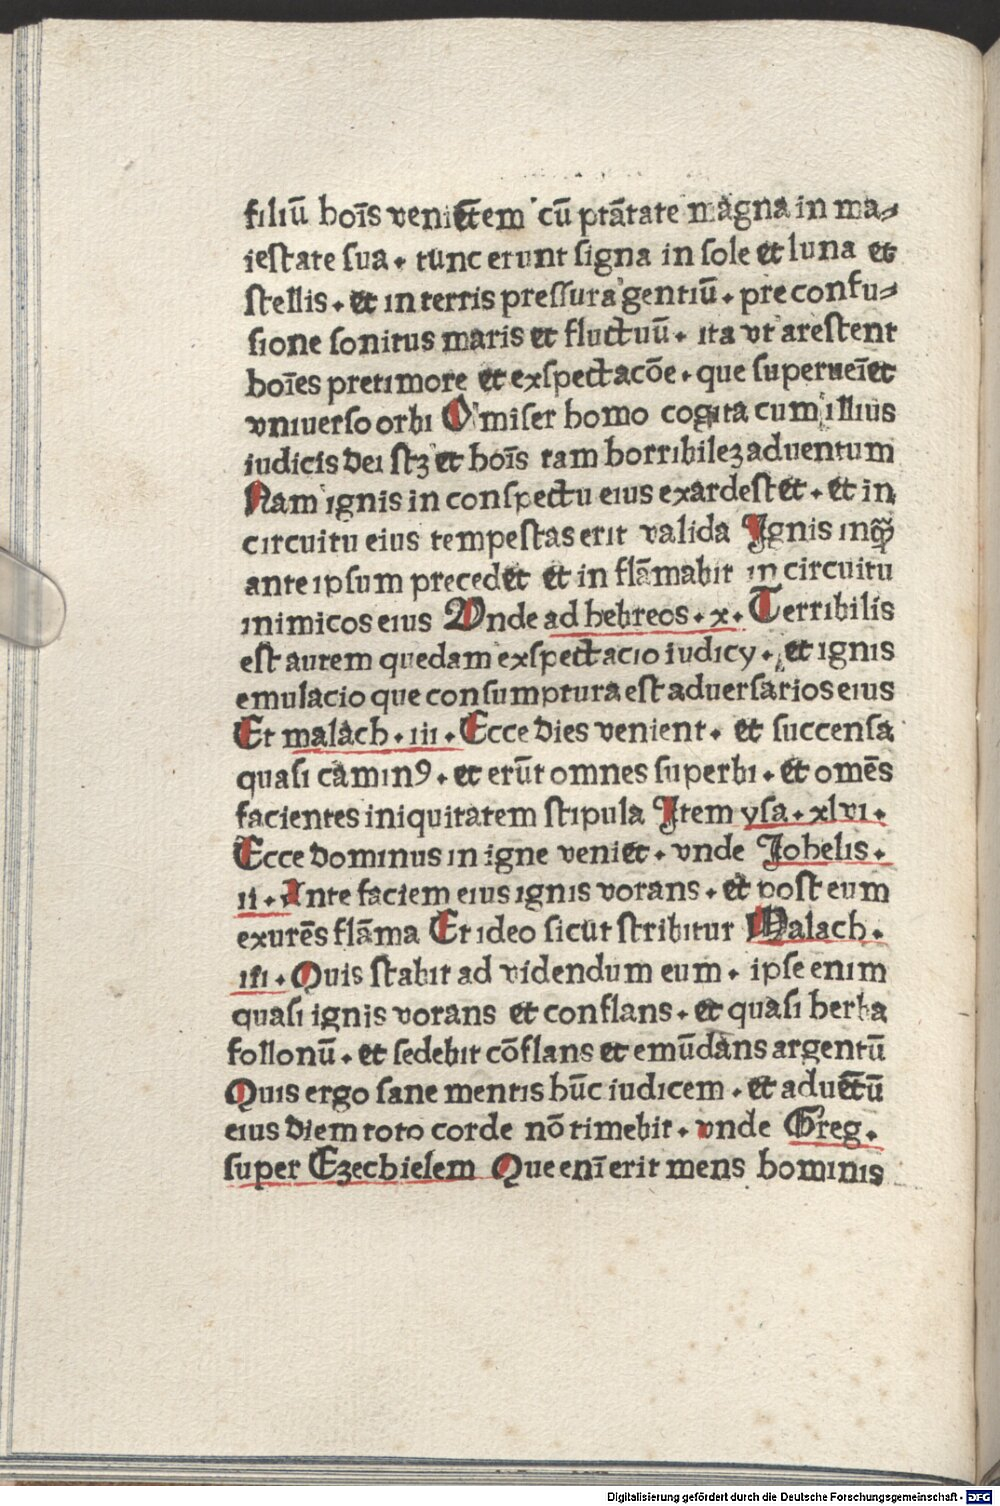 filiū hoīs venietem cū ptātate magna in ma⸗
iestate sua · tunc erunt signa in sole et luna et
stellis · et in terris pressura gentiū · pre confu⸗
sione sonitus maris et fluctuū · ita vt arescent
hoīes pre timore et exspectacōe · que superueīet
vniuerso orbi O miser homo cogita cum illius
iudicis dei scꝫ et hoīs tam horribileꝫ aduentum
Nam ignis in conspectu eius exardescet · et in
circuitu eius tempestas erit valida Ignis inqͥꝫ
ante ipsum precedet et in flāmabit in circuitu
inimicos eius Unde ad hebreos · x · Terribilis
est autem quedam exspectacio iudicy · et ignis
emulacio que consumptura est aduersarios eius
Et malach · iii · Ecce dies venient · et succensa
quasi caminꝰ · et erūt omnes superbi · et omēs
facientes iniquitatem stipula Item ysa · xlvi ·
Ecce dominus in igne veniet · vnde Johelis ·
ii · Ante faciem eius ignis vorans · et post eum
exurēs flāma Et ideo sicut scribitur Malach ·
iii · Quis stabit ad videndum eum · ipse enim
quasi ignis vorans et conflans · et quasi herba
follonū · et sedebit cōflans et emūdans argentū
Quis ergo sane mentis hūc iudicem · et aduētū
eius diem toto corde nō timebit · vnde Greg ·
super Ezechielem Que enī erit mens hominis
Digitalisierung gefördert durch die Deutsche Forschungsgemeinschaft - DFG